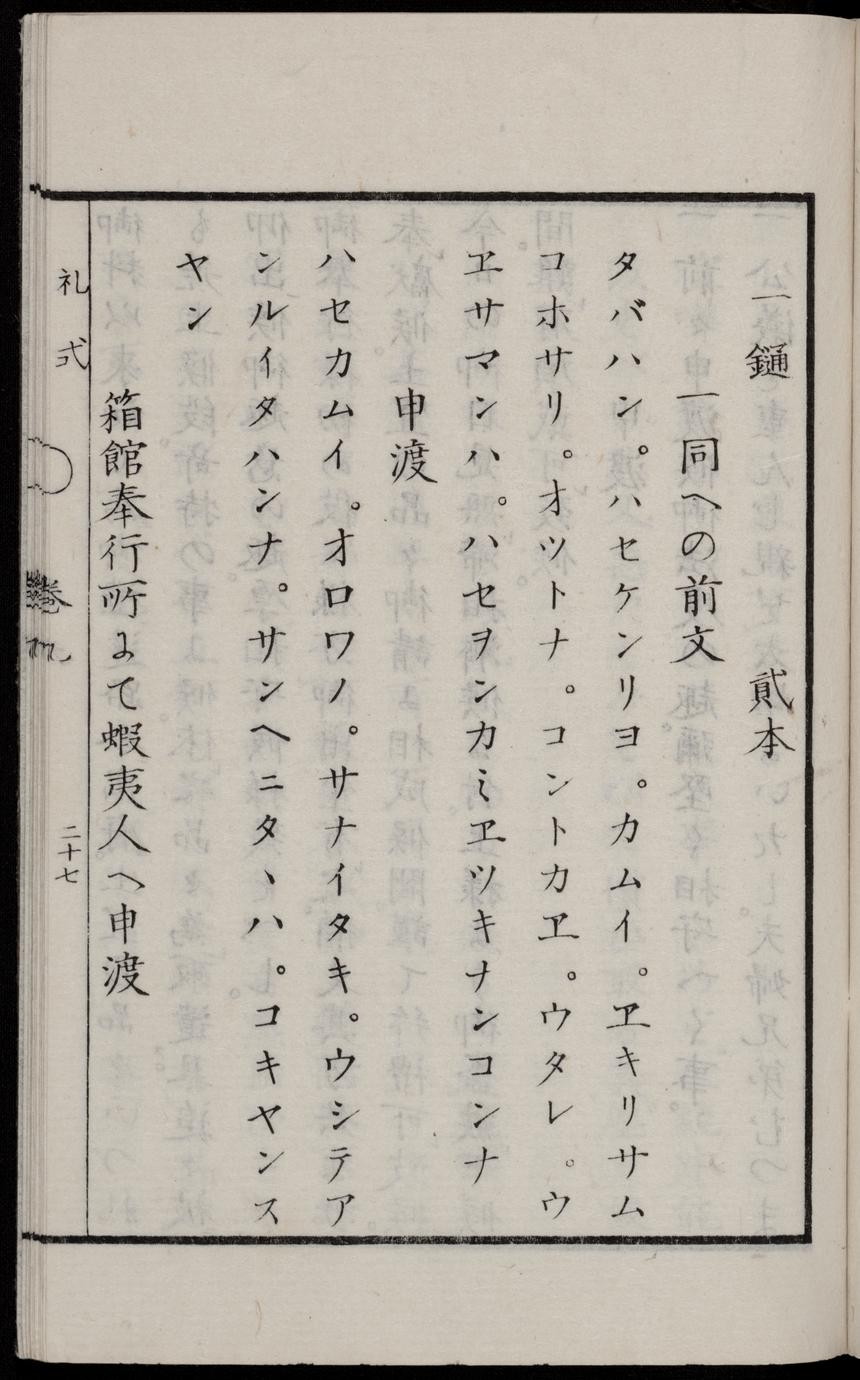 一鏈　貳本
一同への前文
タバハン。ハセケンリヨ。カムイ。ヱキリサム
コホサリ。オツトナ。コントカヱ。ウタレ。ウ
ヱサマンハ。ハセヲンカミヱツキナンコンナ
申渡
ハセカムイ。オロワノ。サナイタキ。ウシテア
ンルイタハンナ。サンヘニタヽハ。コキヤンス
ヤン
箱館奉行所よて蝦夷人へ申渡
礼式
巻九
二十七